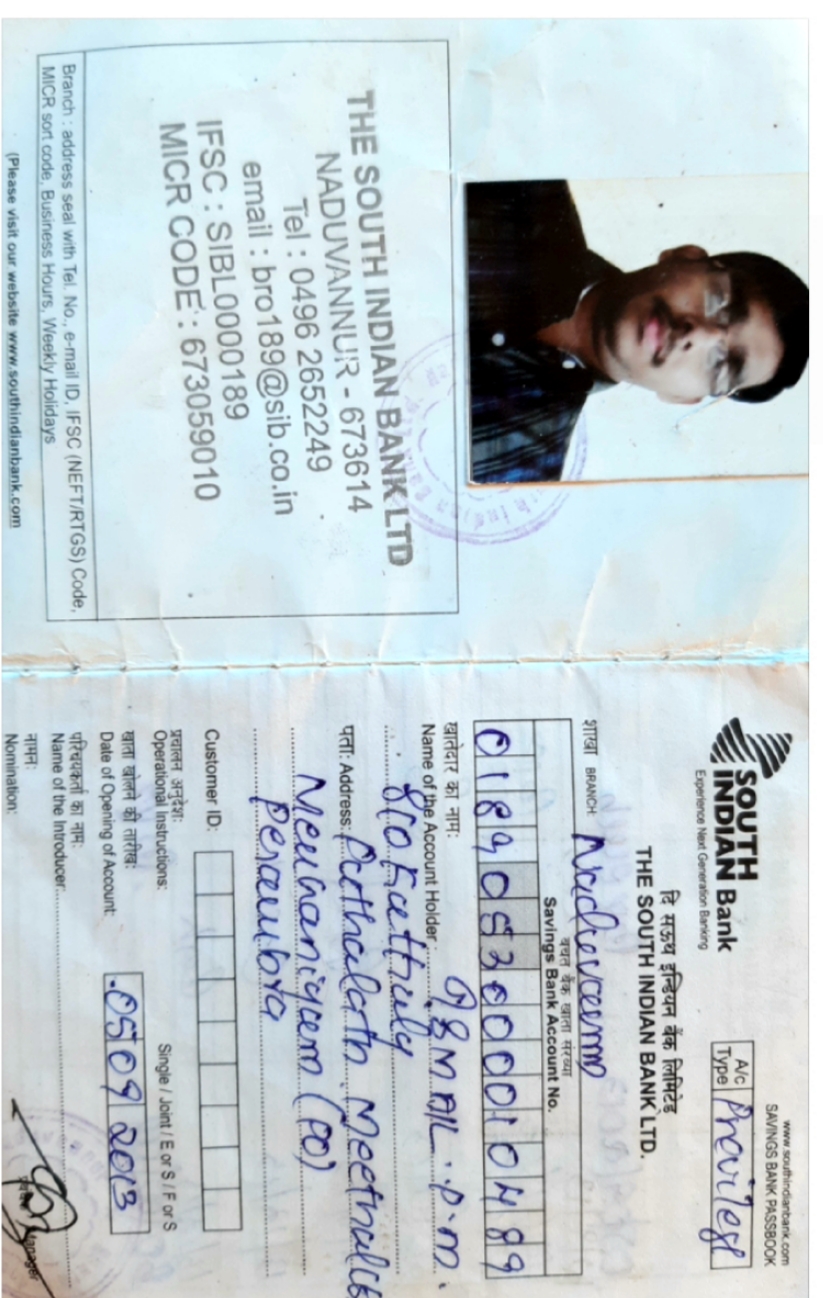 THE SOUTH INDIAN BANK LTD
NADUVANNUR - 673614
Tel : 0496 2652249
email : bro189@sib.co.in
IFSC : SIBL0000189
MICR CODE : 673059010
Branch : address seal with Tel. No., e-mail ID, IFSC (NEFT/RTGS) Code,
MICR sort code, Business Hours, Weekly Holidays
(Please visit our website www.southindianbank.com
www.southindianbank.com
SAVINGS BANK PASSBOOK
SOUTH
INDIAN Bank
Experience Next Generation Banking
A/c
Type
दि साउथ इन्डियन बैंक लिमिटेड
THE SOUTH INDIAN BANK LTD.
शाखा BRANCH:
बचत बैंक खाता संख्या
Savings Bank Account No.
खातेदार का नाम:
Name of the Account Holder : ISMAIL . P . M .
S/o
पता: Address:
(PO)
Perambra
Customer ID:
प्रचालन अनुदेश:
Operational Instructions: Single / Joint / E or S / F or S
खाता खोलने की तारीख:
Date of Opening of Account: 05 09 2013
परिचयकर्ता का नाम:
Name of the Introducer
नामन:
Nomination:
Manager